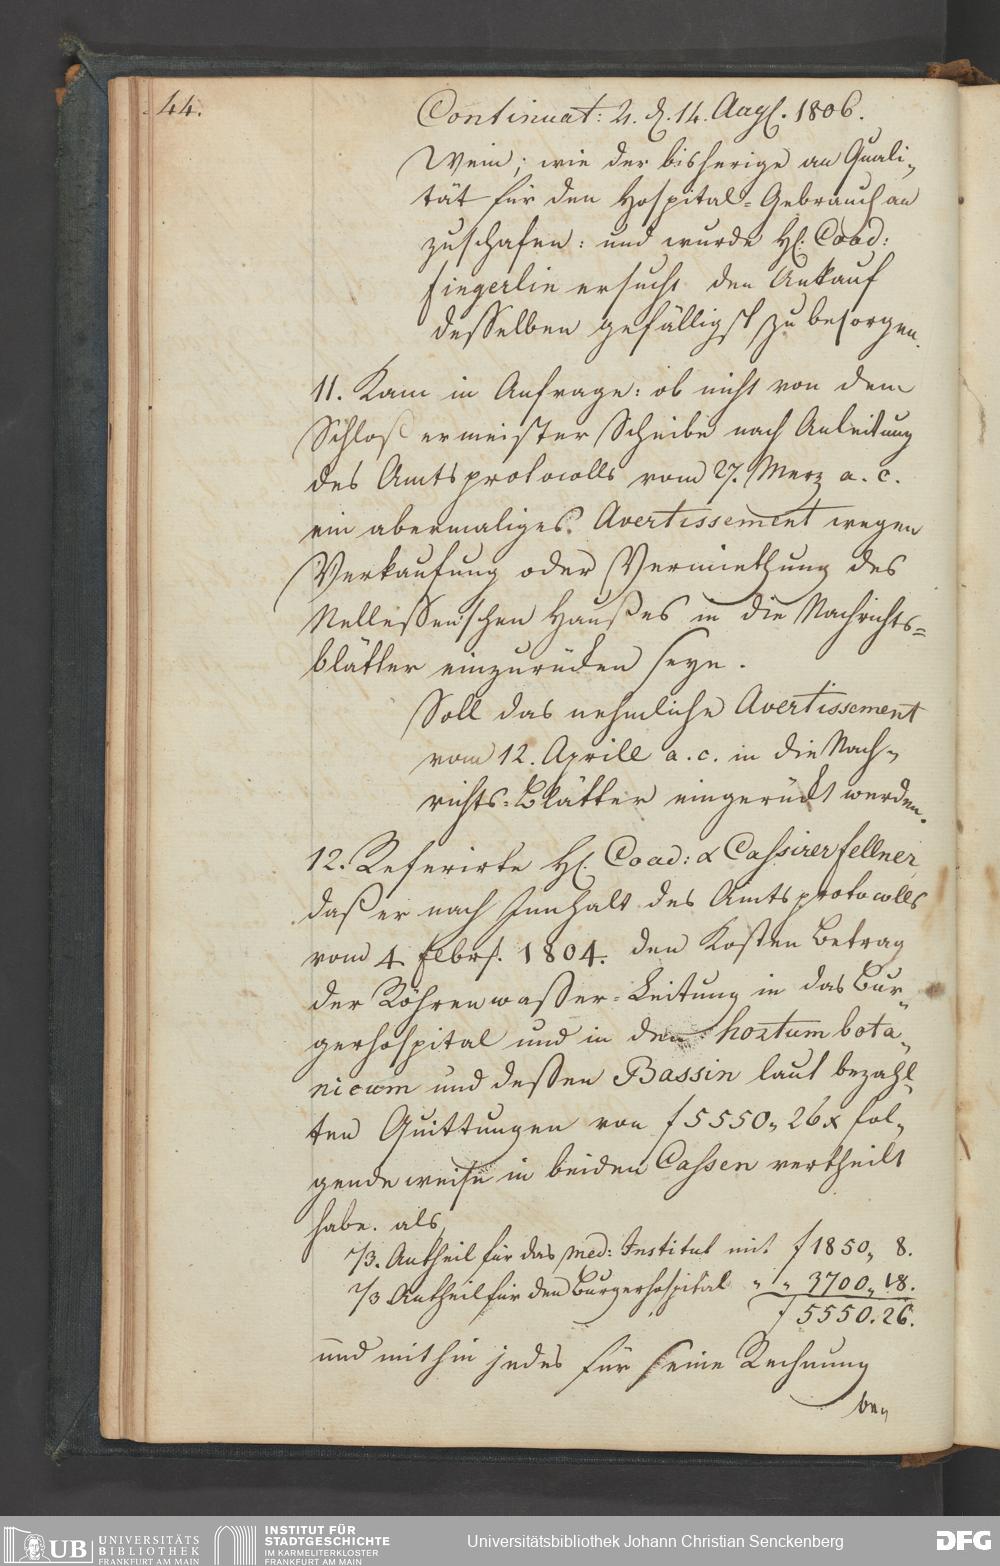 44.
Continuat: 4. d. 14. Augs. 1806.
Wein; wie der bisherige an Quali-
tät für den Hospital-Gebrauch an
zuschafen: und wurde H. Coad:
Fingerlin ersucht den Ankauf
desselben gefälligst zu besorgen.
11. Kam in Anfrage: ob nicht von dem
Schloßermeister Scheibe nach Anleitung
des Amtsprotocolls vom 27. Merz a. c.
ein abermaliges Avertissement wegen
Verkaufung oder Vermiethung des
Nelleßen'schen Haußes in die Nachrichts-
blätter einzurüken seye.
Soll das nehmliche Avertissement
vom 12. Aprill a. c. in die Nach-
richts-Blätter eingerückt werden.
12. Referirte H. Coad: & Cassirer Fellner,
daß er nach Innhalt des Amtsprotocolls
vom 4. Febr. 1804. den Kosten Betrag
der Röhrenwaßer-Leitung in das Bur-
gerhospital und in den hortum bota-
nicum und deßen Bassin laut bezahl-
ten Quittungen von f 5550. 26 x fol-
gende weise in beiden Cassen vertheilt
habe. als
1/3. Antheil für das med: Institut mit f 1850. 8.
2/3 Antheil für den Burgerhospital " " 3700. 18.
f 5550. 26.
und mithin jedes für seine Rechnung
be-
UB UNIVERSITÄTS
BIBLIOTHEK
FRANKFURT AM MAIN
INSTITUT FÜR
STADTGESCHICHTE
IM KARMELITERKLOSTER
FRANKFURT AM MAIN
Universitätsbibliothek Johann Christian Senckenberg
DFG